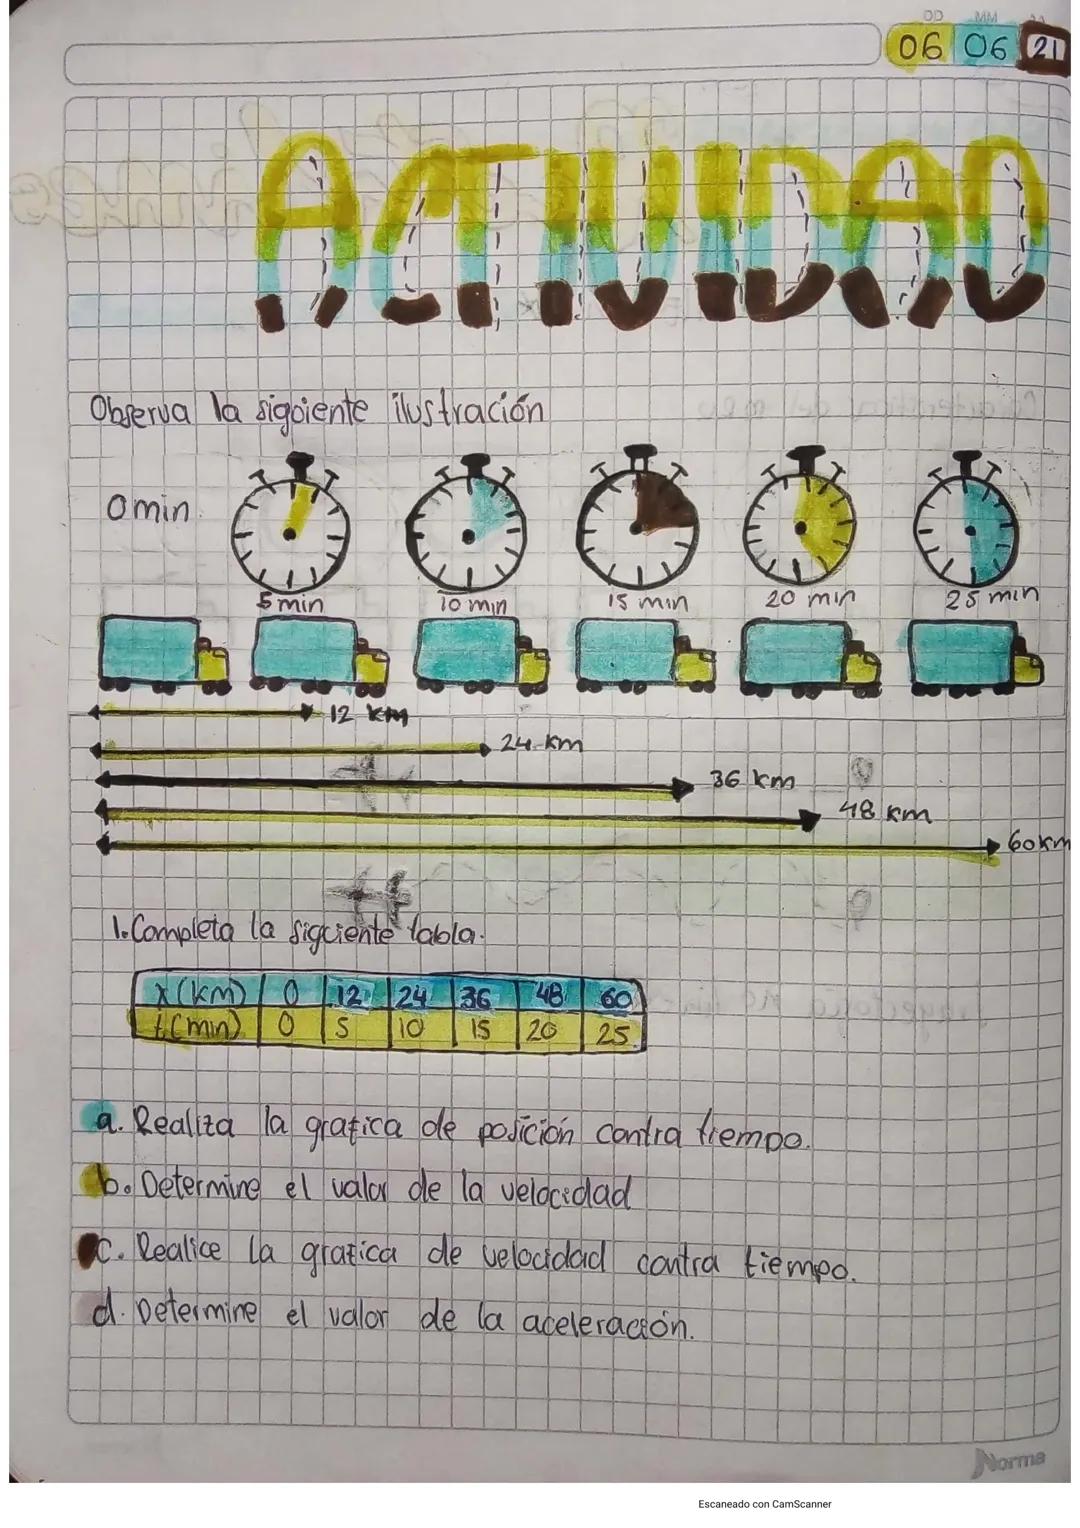 DD MM AA
06 06 21
ACTIVIDAD
Observa la sigüiente ilustración
0 min
5 min 10 min 15 min 20 min 25 min
12 km
24 km
36 km
48 km
60 km
1. Completa la sigüiente tabla.
x (km) 0 12 24 36 48 60
t (min) 0 5 10 15 20 25
a. Realiza la grafica de posición contra tiempo.
b. Determine el valor de la velocidad
c. Realice la grafica de velocidad contra tiempo.
d. Determine el valor de la aceleración.
Norma
Escaneado con CamScanner